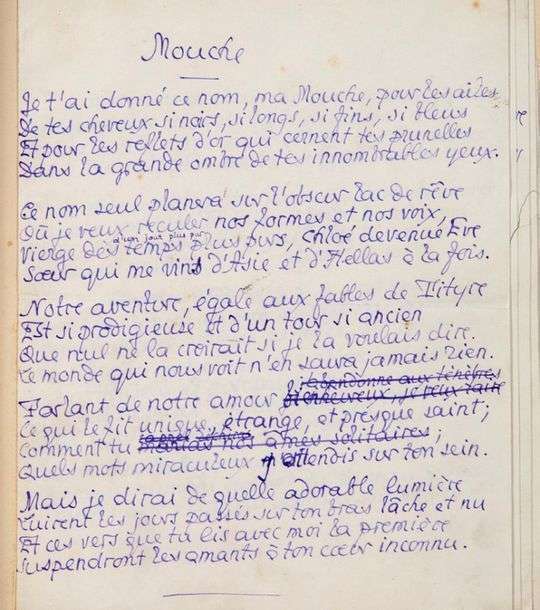 Mouche
Je t'ai donné ce nom, ma Mouche, pour les ailes
De tes cheveux si noirs, si longs, si fins, si bleus
Et pour les reflets d'or qui cernent tes prunelles
Dans la grande ombre de tes innombrables yeux.
Ce nom seul planera sur l'obscur lac de rêve
Où je veux reculer nos formes et nos voix,
d'un jour plus pur
Vierge des temps plus purs, Chloé devenue Eve
Sœur qui me vins d'Asie et d'Hellas à la fois.
Notre aventure, égale aux fables de Tityre
Est si prodigieuse et d'un tour si ancien
Que nul ne la croirait si je la voulais dire.
Le monde qui nous voit n'en saura jamais rien.
j'abandonne aux ténèbres
Parlant de notre amour bienheureux, je veux taire
Ce qui le fit unique, étrange, et presque saint;
Comment tu nos âmes solitaires;
Quels mots miraculeux j'attendis sur ton sein.
Mais je dirai de quelle adorable lumière
Luirent les jours passés sur ton bras lâche et nu
Et ces vers que tu lis avec moi la première
Suspendront les amants à ton cœur inconnu.